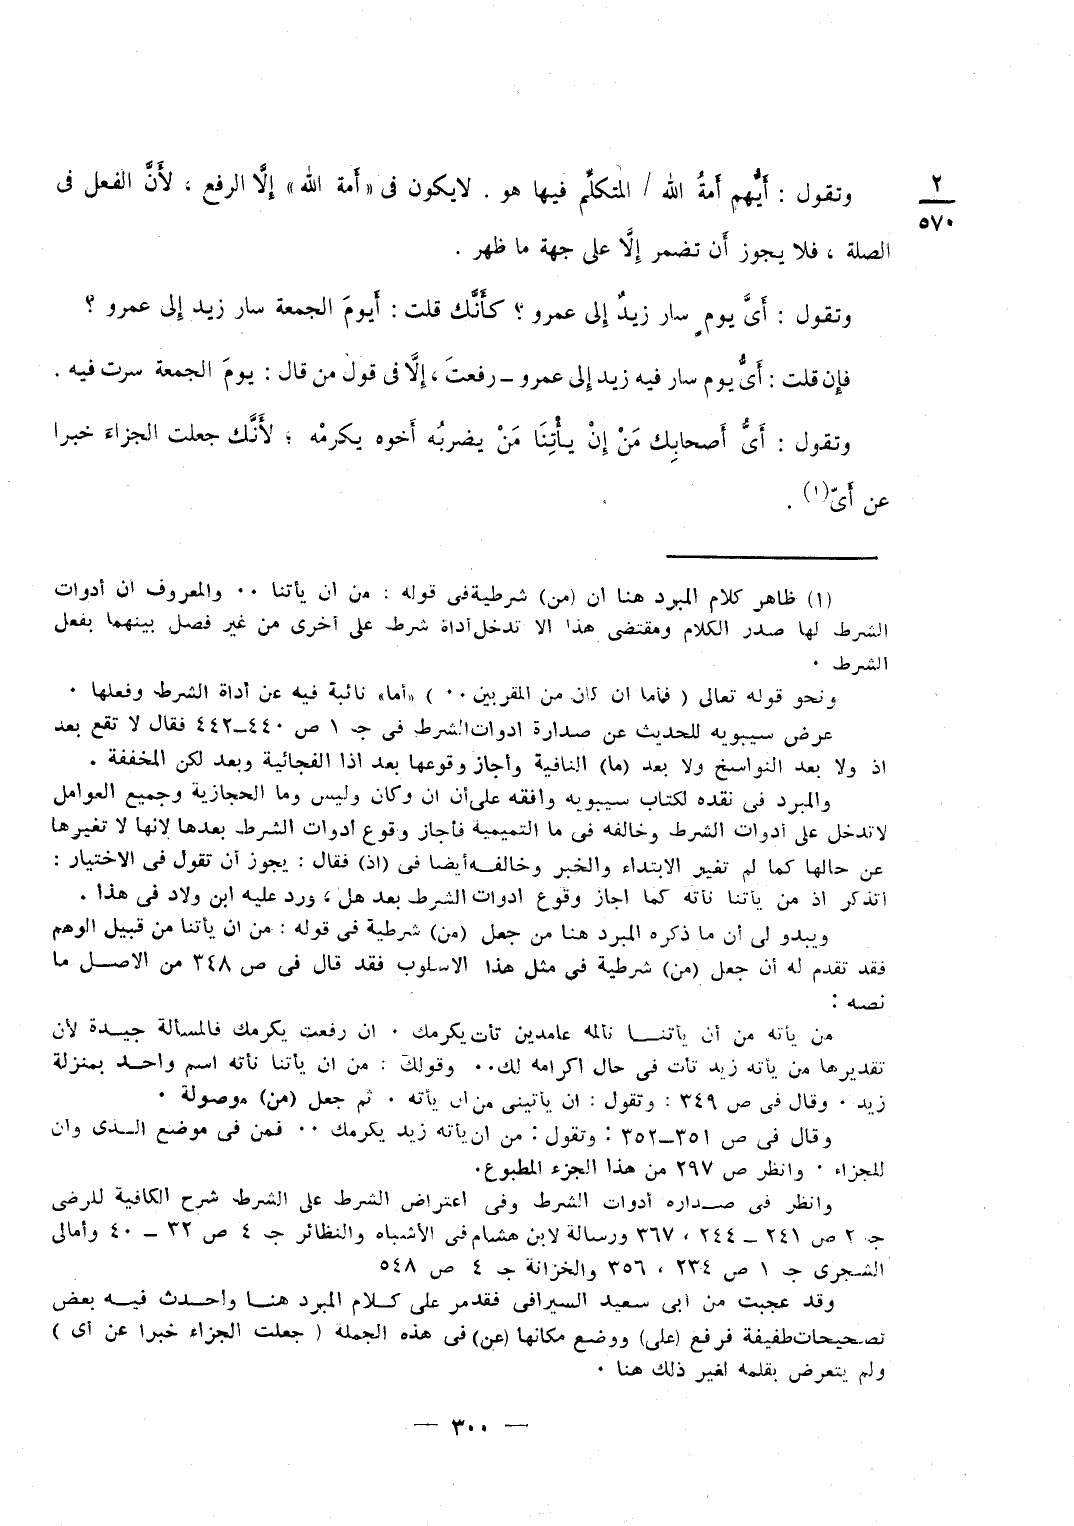 ٢
٥٧٠
وتقول : أَيُّهم أَمةُ الله / المتكلِّم فيها هو . لايكون فى «أَمة الله» إلَّا الرفع ، لأَنَّ الفعل فى
الصلة ، فلا يجوز أَن تضمر إلَّا على جهة ما ظهر .
وتقول : أَىَّ يوم سار زيدٌ إلى عمرو ؟ كأَنَّك قلت : أَيومَ الجمعة سار زيد إلى عمرو ؟
فإن قلت : أَىُّ يوم سار فيه زيد إلى عمرو – رفعتَ ، إلَّا فى قول من قال : يومَ الجمعة سرت فيه .
وتقول : أَىُّ أَصحابِك مَنْ إنْ يأْتِنَا مَنْ يضربُه أَخوه يكرمْه ؛ لأَنَّك جعلت الجزاءَ خبرا
عن أَىّ(١) .
(١) ظاهر كلام المبرد هنا ان (من) شرطية فى قوله : من ان يأتنا ٠٠ والمعروف ان أدوات
الشرط لها صدر الكلام ومقتضى هذا الا تدخل أداة شرط على أخرى من غير فصل بينهما بفعل
الشرط ٠
ونحو قوله تعالى ( فأما ان كان من المقربين ٠٠ ) «أما» نائبة فيه عن أداة الشرط وفعلها ٠
عرض سيبويه للحديث عن صدارة ادوات الشرط فى جـ ١ ص ٤٤٠–٤٤٢ فقال لا تقع بعد
اذ ولا بعد النواسخ ولا بعد (ما) النافية وأجاز وقوعها بعد اذا الفجائية وبعد لكن المخففة .
والمبرد فى نقده لكتاب سيبويه وافقه على أن ان وكان وليس وما الحجازية وجميع العوامل
لاتدخل على أدوات الشرط وخالفه فى ما التميمية فأجاز وقوع أدوات الشرط بعدها لانها لا تغيرها
عن حالها كما لم تغير الابتداء والخبر وخالفه أيضا فى (اذ) فقال : يجوز أن تقول فى الاختيار :
أتذكر اذ من يأتنا نأته كما اجاز وقوع ادوات الشرط بعد هل ، ورد عليه ابن ولاد فى هذا .
ويبدو لى أن ما ذكره المبرد هنا من جعل (من) شرطية فى قوله : من ان يأتنا من قبيل الوهم
فقد تقدم له أن جعل (من) شرطية فى مثل هذا الاسلوب فقد قال فى ص ٣٤٨ من الاصل ما
نصه :
من يأته من أن يأتنا نأته عامدين تأت يكرمك ٠ ان رفعت يكرمك فالمسألة جيدة لأن
تقديرها من يأته زيد تأت فى حال اكرامه لك٠٠ وقولك : من ان يأتنا نأته اسم واحد بمنزلة
زيد ٠ وقال فى ص ٣٤٩ : وتقول : ان يأتينى من ان يأته ٠ ثم جعل (من) موصولة ٠
وقال فى ص ٣٥١–٣٥٢ : وتقول : من ان يأته زيد يكرمك ٠٠ فمن فى موضع الذى وان
للجزاء ٠ وانظر ص ٢٩٧ من هذا الجزء المطبوع٠
وانظر فى صداره أدوات الشرط وفى اعتراض الشرط على الشرط شرح الكافية للرضى
جـ ٢ ص ٢٤١ – ٢٤٤ ، ٣٦٧ ورسالة لابن هشام فى الأشباه والنظائر جـ ٤ ص ٣٢ – ٤٠ وأمالى
الشجرى جـ ١ ص ٢٣٤ ، ٣٥٦ والخزانة جـ ٤ ص ٥٤٨
وقد عجبت من أبى سعيد السيرافى فقد مر على كلام المبرد هنا وأحدث فيه بعض
تصحيحات طفيفة فرفع (على) ووضع مكانها (عن) فى هذه الجملة ( جعلت الجزاء خبرا عن أى )
ولم يتعرض بقلمه لغير ذلك هنا ٠
— ٣٠٠ —